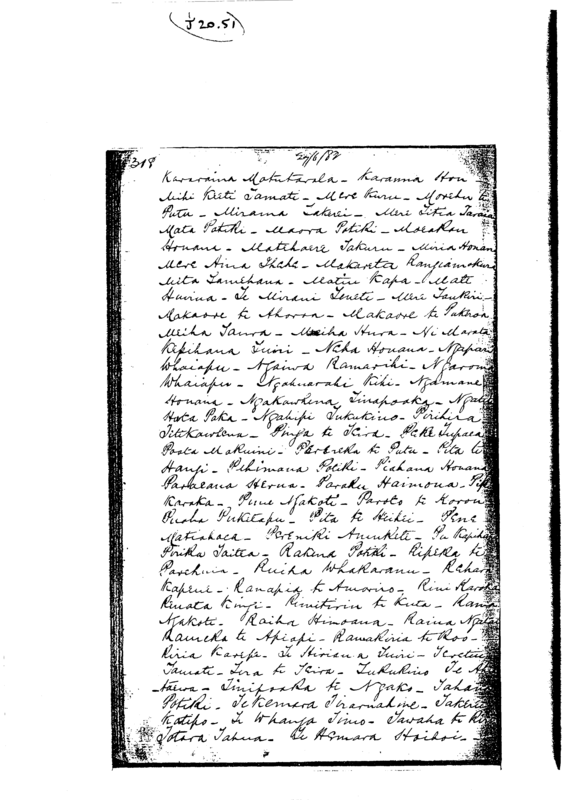 J 20.51
318 29/6/82
Keraraina Matutaera - Karauna Hou
Mihi Kiti Tamati - Mere Kuru - Morehu te
Putu - Miriama Takerei - Mere Titia
Mata Potiki - Maora Potiki - Moeakau
Houana - Matehaere Takuru - Miria Houan
Mere Aina - Makareta Rangiamokura
Mita Tamehana - Matiu Kapa - Mate
Huirua - Te Mirani Teneti - Mere Taukiri -
Makaore te Ahoroa - Makaore te Pukeroa
Meiha Taurua - Meiha Hura - Ni Marata
Kepihana Tuiri - Neha Houana - Ngapari
Whaiapu - Ngaiwa Ramarihi - Ngarom
Whaiapu - Ngahuarahi Kihi - Ngamane
Houana - Ngakawhena Tinapoaka -
Hata Paka - Ngahipi Tukukino - Pirihira
Titekawlena - Pinga te Kira - Peke Tupaea
Poata Makuini - Pereneka te Putu - Pita te
Hangi - Pihimana Potiki - Piahana Houana
Paraeana Herua - Paraku Haimona -
Karaka - Pine Ngakoti - Paroto te Korou
Puaha Puketapu - Pita te Heihei - Pene
Matiahaea - Pereniki Anukete - Pu Kepiha
Porika Taitea - Rakena Potiki - Ripeka te
Parehuia - Ruiha Whakaranu -
Kapene - Ranapia te Amorino - Rini
Renata Kingi - Rimitiriu te Kuta -
Ngakoti - Raiha Himoana - Raina
Rameka te Apiapi - Ramakiria te Roo -
Riria Karepe - Te Hiriana Tuiri -
Tamati - Tira te Kira - Tukukino Te
taiwa - Tinipoaka te Ngako -
Potiki - Te Kemara Tirarauhine -
Katipo - Te Whanga Timo - Tawaha te Ki
Totara Tahua - Te Hemara Hoihoi -